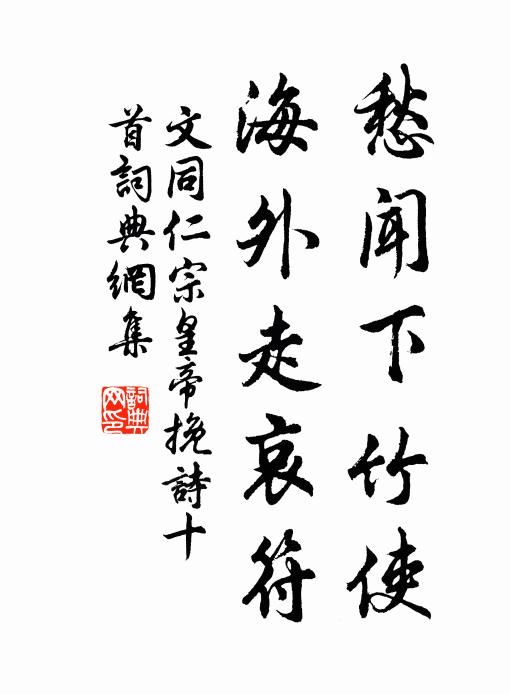 愁聞下竹使
海外走哀符
文同仁宗皇帝挽詩十
首詞典網集
詞典
网印